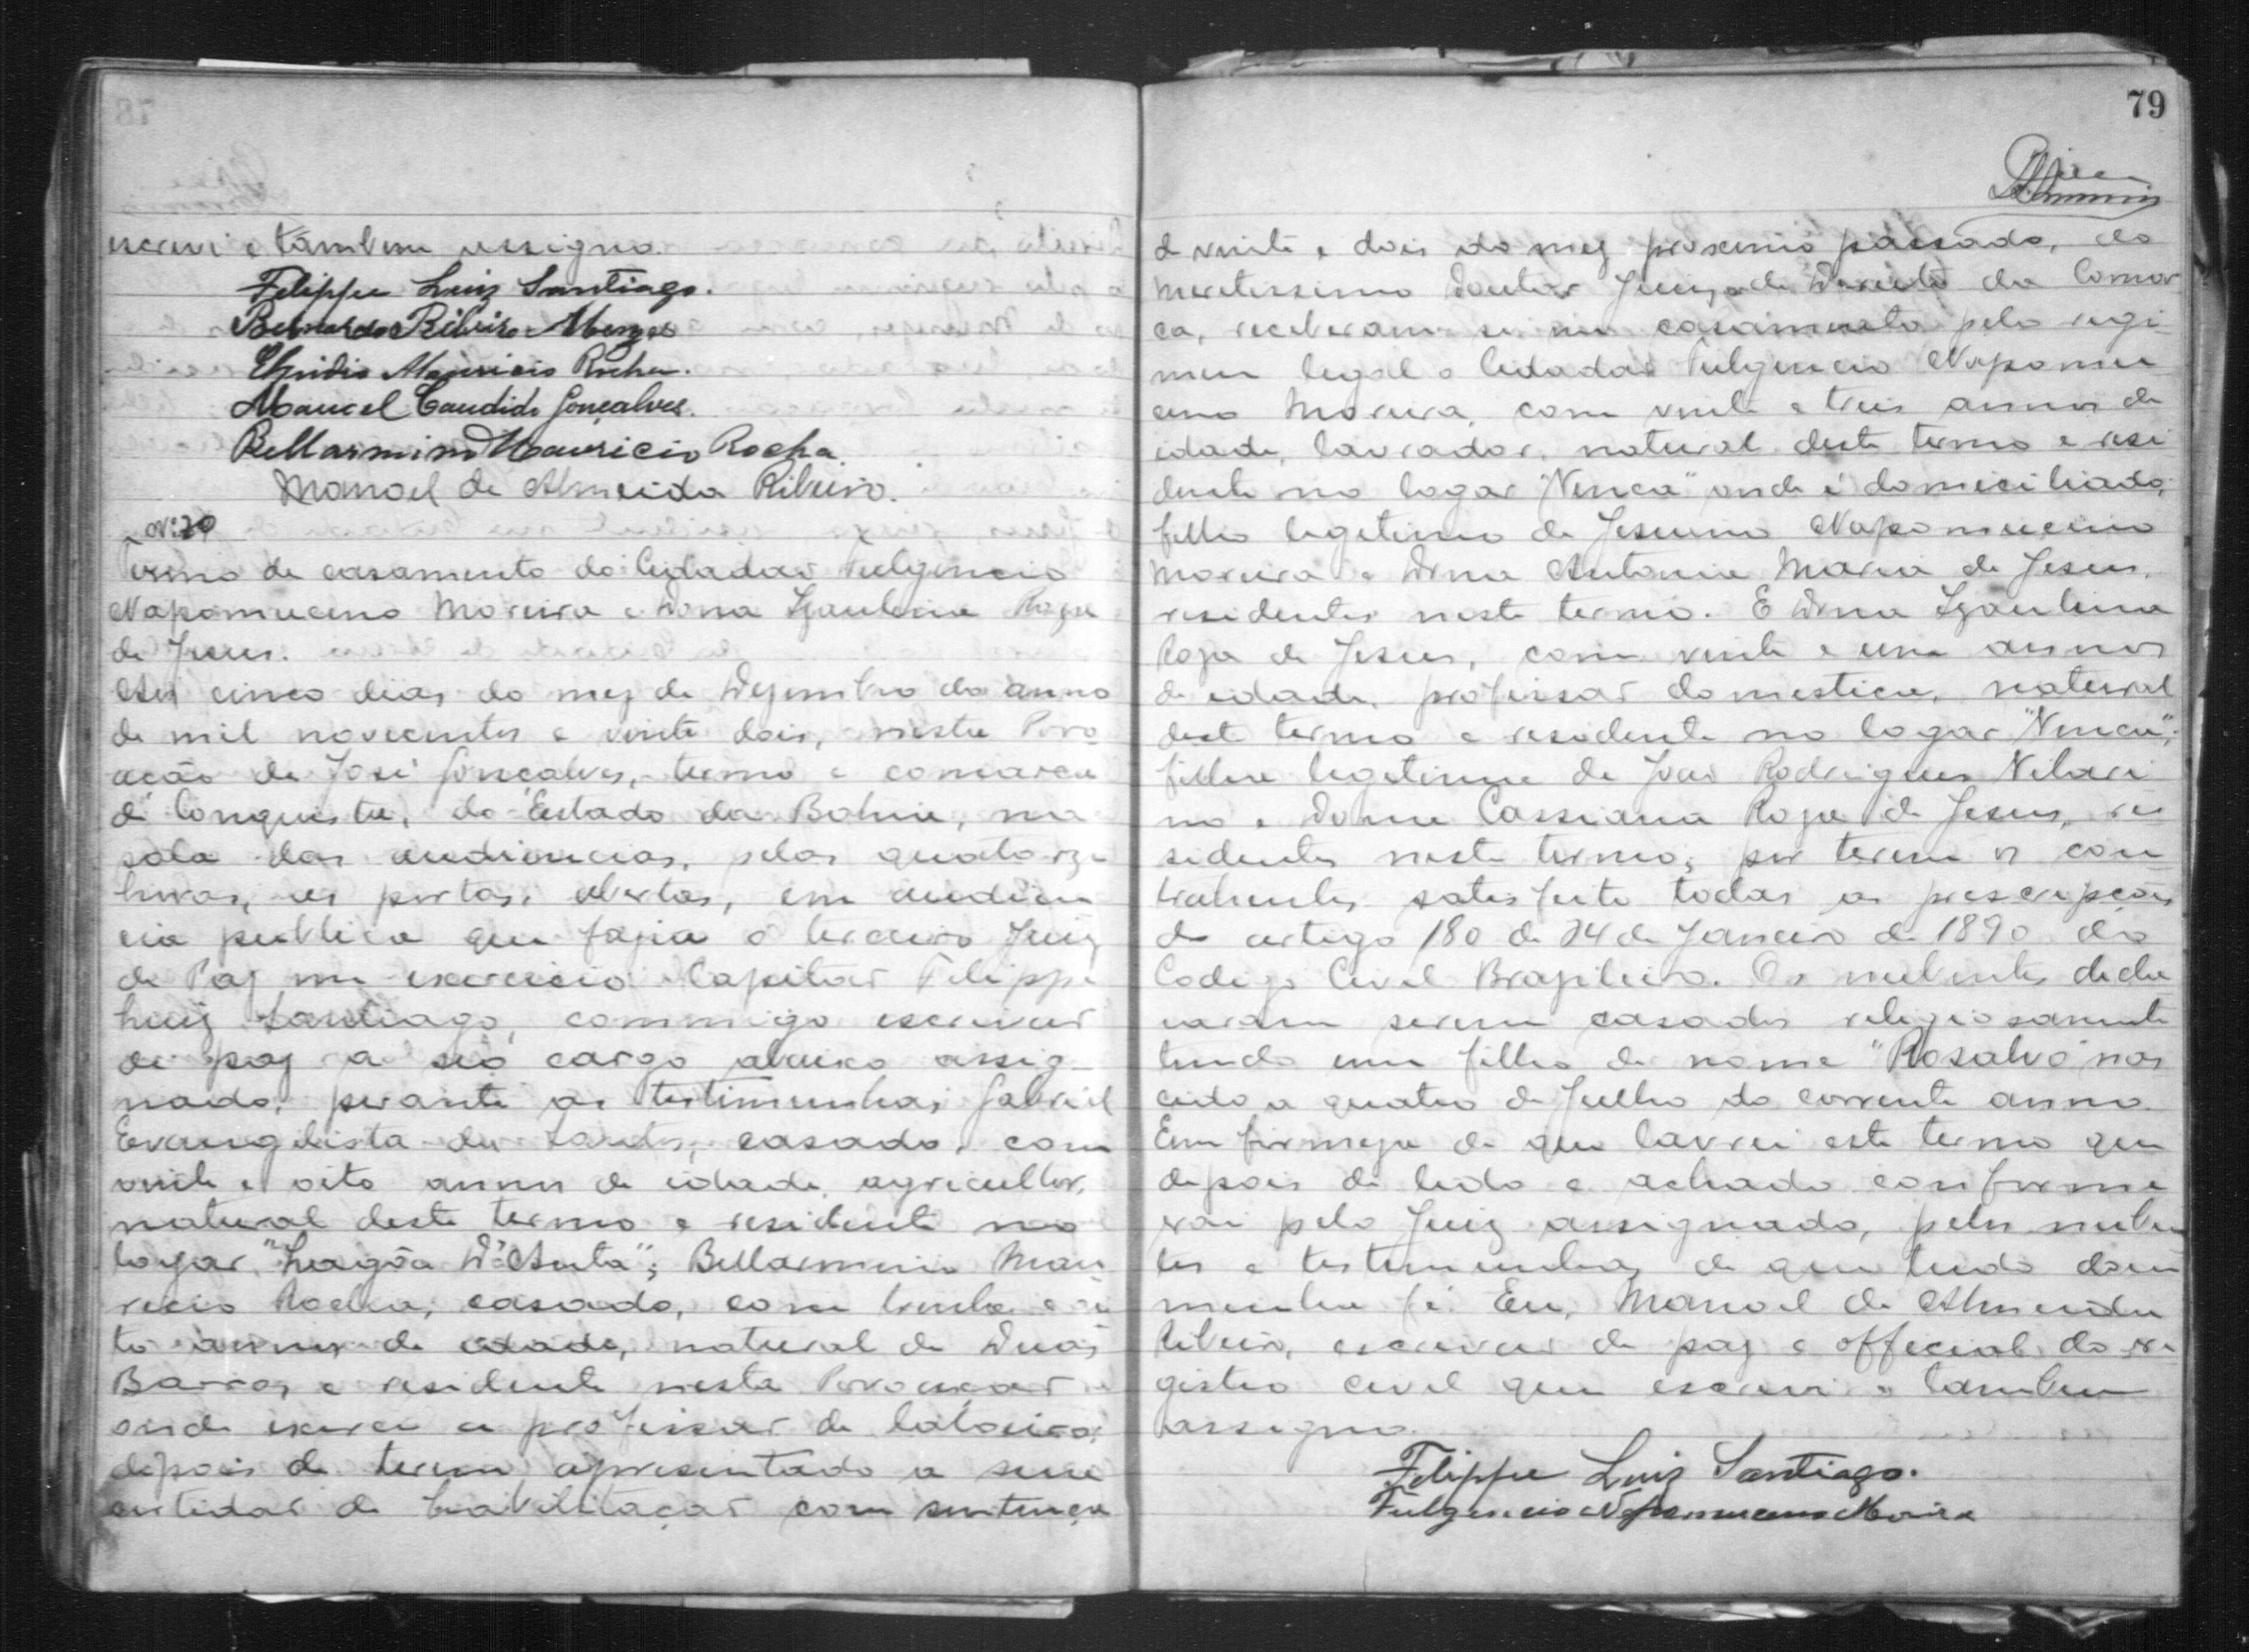 escrevi e tambem assigno.
Filippe Luiz Santiago.
Bernardo Ribeiro Menezes
Elpidio Mauricio Rocha.
Manoel Candido Gonçalves.
Bellarmino Mauricio Rocha
Manoel de Almeida Ribeiro.
Nº 70
Termo de casamento do Cidadão Fulgencio
Napomuceno Moreira e Dona Izaulina Roza
de Jesus.
Aos cinco dias do mez de Dezembro do anno
de mil novecentos e vinte dois, nesta Povo
ação de José Gonçalves, termo e comarca
de Conquista, do Estado da Bahia, na
sala das audiencias, pelas quatorze
horas, as portas abertas, em audien
cia publica que fazia o terceiro Juiz
de Paz em exercicio Capitão Filippe
Luiz Santiago, commigo escrivão
de paz a seo cargo abaixo assig-
nado, perante as testimunhas Gabriel
Evangelista dos Santos, casado, com
vinte e oito annos de idade, agricultor,
natural deste termo e residente no
logar "Lagôa D'Anta"; Bellarmino Mau
ricio Rocha, casado, com trinta e oi
to annos de idade, natural de Duas
Barras, e residente nesta Povoação
onde exerce a professar de latoeiro;
depois de terem apresentado a sua
certidão de habilitação com sentença
79
d vinte e dois do mez proximo passado, do
Meretissimo Doutor Juiz de Dereito da Comar
ca, receberam-se em casamento pelo regi
men legal o Cidadão Fulgencio Napomu
ceno Moreira, com vinte e tres annos de
idade, lavrador, natural deste termo e resi
dente no logar "Nenca" onde é domiciliado,
filho legitimo de Jesuino Napomuceno
Moreira e Dona Antonia Maria de Jesus,
residentes neste termo. E Dona Izaulina
Roza de Jesus, com vinte e um annos
de idade, professar domestica, natural
deste termo e residente no logar "Nenca",
filha legitima de João Rodrigues
no e Dona Cassiana Roza de Jesus, re
sidentes neste termo; por terem os con
trahentes satisfeito todas as prescripções
do artigo 180 de 24 de Janeiro de 1890 do
Codigo Civil Brazileiro. Os nubentes decla
raram serem casados religiosamente
tendo um filho de nome "Rosalvo" nas
cido a quatro de Julho do corrente anno.
Em firmeza de que lavrei este termo que
depois de lido e achado conforme
vai pelo Juiz assignado, pelos nuben
tes e testemunhas de que tudo dou
minha fé. Eu, Manoel de Almeida
Ribeiro, escrivão de paz e official do re
gistro civil que escrevi e tambem
assigno.
Filippe Luiz Santiago.
Fulgencio Napomuceno Moreira